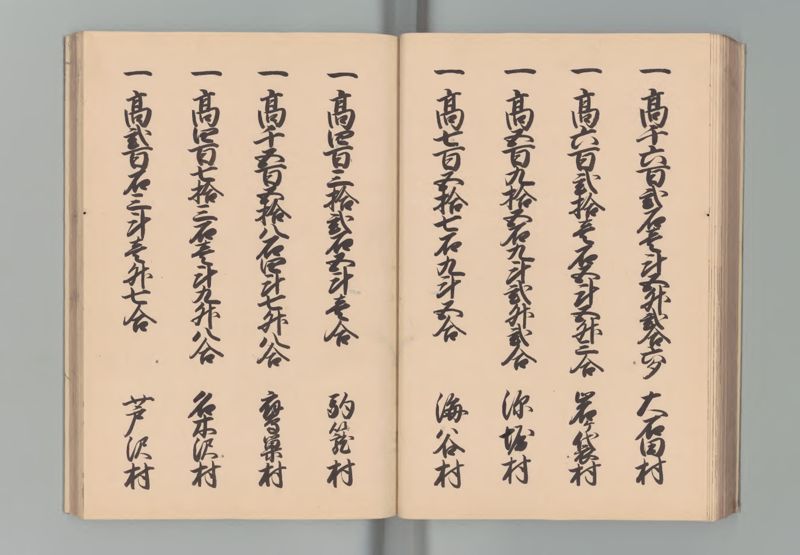 一 高千六百弐石壱斗五升弐合六夕 大石田村
一 高六百弐拾壱石五斗五升三合 岩ケ袋村
一 高五百九拾五石九斗弐升弐合 深堀村
一 高七百五拾七石九斗五合 海谷村
一 高四百三拾弐石五斗壱合 駒籠村
一 高千五百五拾八石四斗七升八合 鷹巣村
一 高四百七拾三石壱斗九升八合 名木沢村
一 高弐百石三斗壱升七合 芦沢村